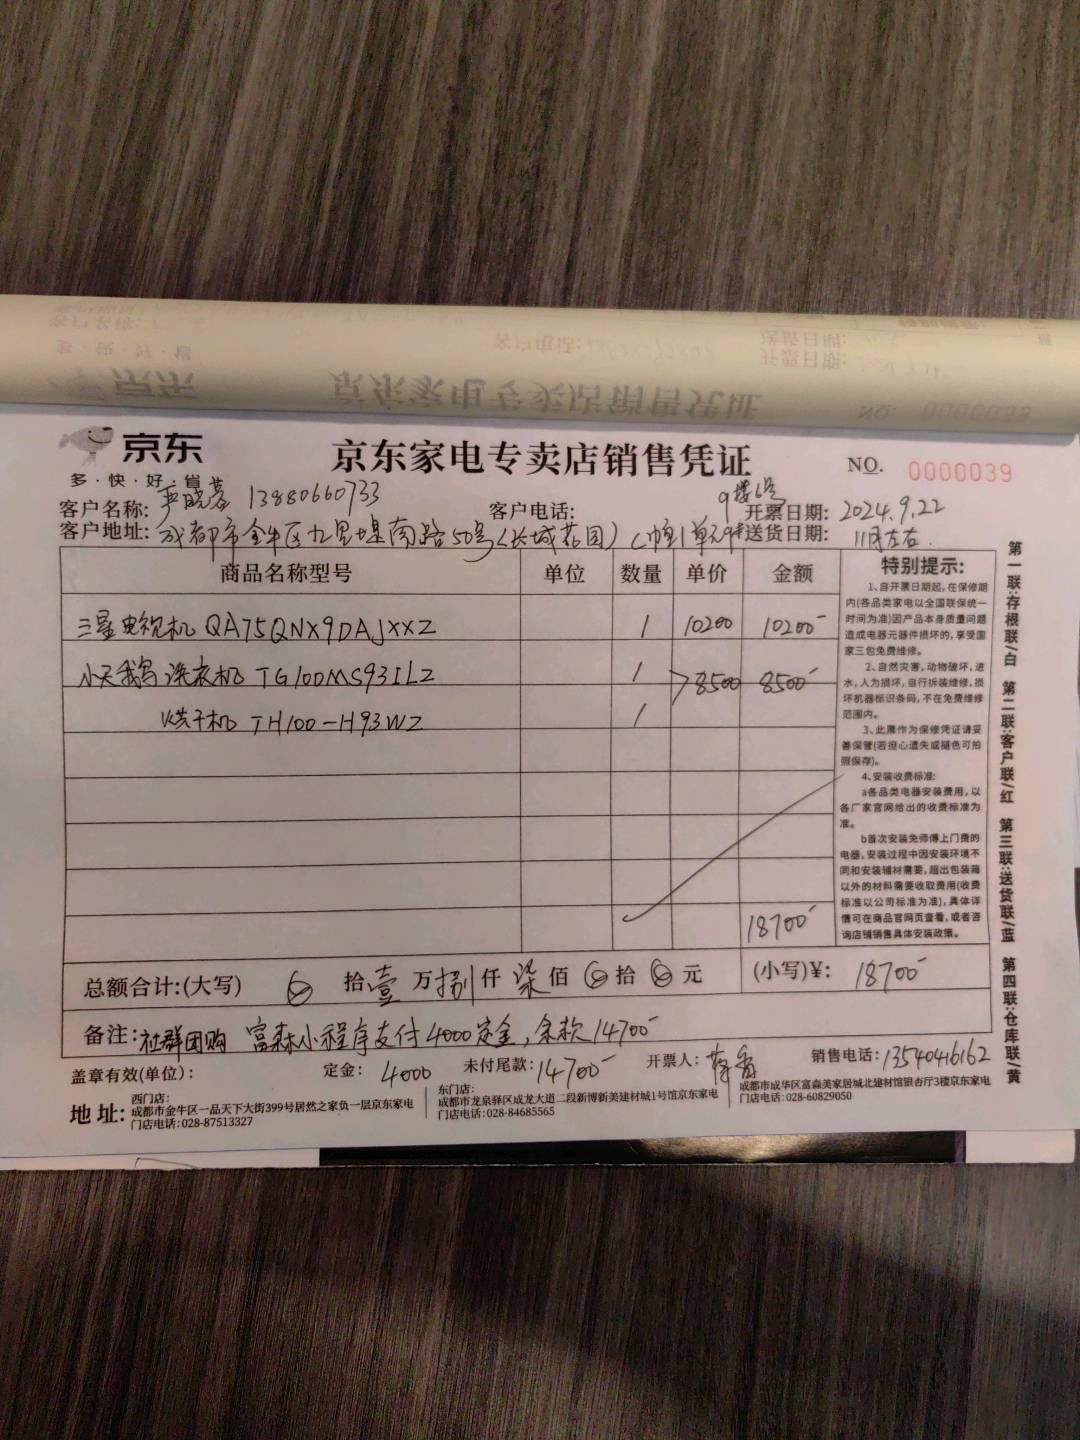 京东
多·快·好·省
京东家电专卖店销售凭证
NO. 0000039
客户名称: 严晓蓉 13880660733 客户电话: 9楼6号 开票日期: 2024.9.22
客户地址: 成都市金牛区九里堤南路50号(长城花园) 1单元 送货日期: 11月左右
商品名称型号 单位 数量 单价 金额
三星电视机 QA75QNX9DAJXXZ 1 10200 10200
小天鹅洗衣机 TG100MS93ILZ 1 8500 8500
烘干机 TH100-H93WZ 1
18700
总额合计:(大写) 拾壹万捌仟柒佰 拾 元 (小写)¥: 18700
备注: 社群团购 富森小程序支付4000定金,余款14700
盖章有效(单位): 定金: 4000 未付尾款: 14700 开票人: 销售电话: 13540416162
地址:
西门店:
成都市金牛区一品天下大街399号居然之家负一层京东家电
门店电话:028-87513327
东门店:
成都市龙泉驿区成龙大道二段新博新美建材城1号馆京东家电
门店电话:028-84685565
成都市成华区富森美家居城北建材馆银杏厅3楼京东家电
门店电话:028-60829050
特别提示:
1、自开票日期起,在保修期
内(各品类家电以全国联保统一
时间为准)因产品本身质量问题
造成电器元器件损坏的,享受国
家三包免费维修。
2、自然灾害,动物破坏,进
水,人为损坏,自行拆装维修,损
坏机器标识条码,不在免费维修
范围内。
3、此票作为保修凭证请妥
善保管(若担心遗失或褪色可拍
照保存)。
4、安装收费标准:
a各品类电器安装费用,以
各厂家官网给出的收费标准为
准。
b首次安装免师傅上门费的
电器,安装过程中因安装环境不
同和安装辅材需要,超出包装箱
以外的材料需要收取费用(收费
标准以公司标准为准),具体详
情可在商品官网页查看,或者咨
询店铺销售具体安装政策。
第一联:存根联/白 第二联:客户联/红 第三联:送货联/蓝 第四联:仓库联/黄